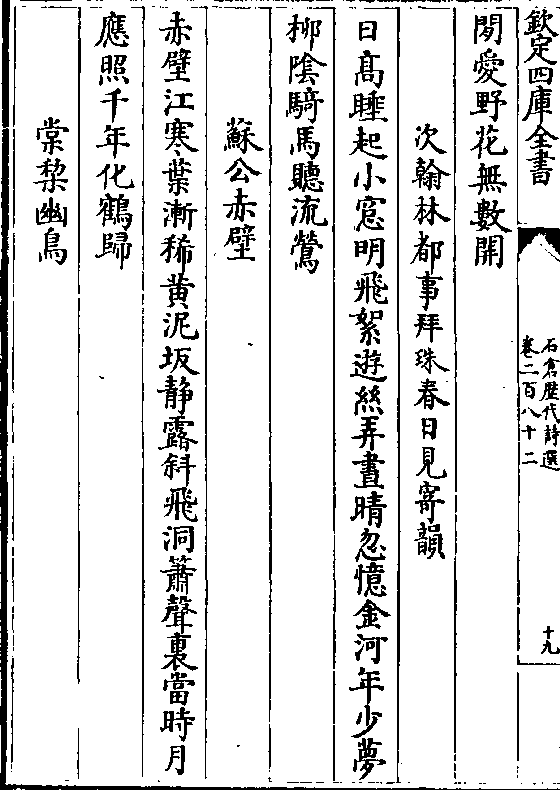 欽定四庫全書
石倉歴代詩選
卷二百八十二
十九
閒愛野花無數開
次翰林都事拜珠春日見寄韻
日髙睡起小窓明飛絮遊絲弄晝晴忽憶金河年少夢
栁隂騎馬聽流鶯
蘇公赤壁
赤壁江寒葉漸稀黄泥坂静露斜飛洞簫聲裏當時月
應照千年化鶴歸
棠棃幽鳥